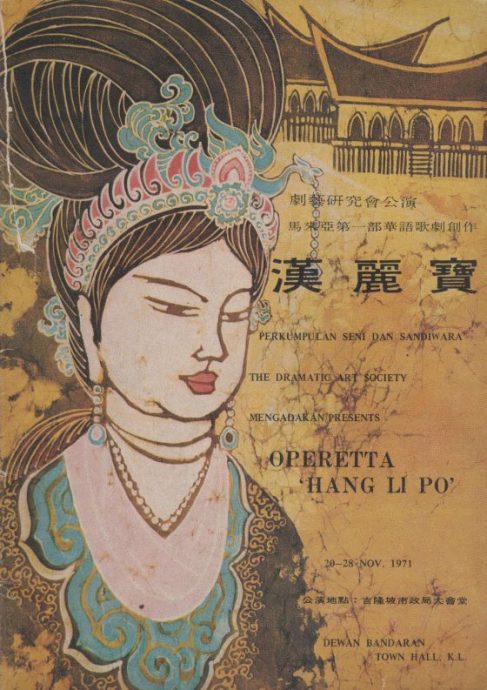 劇藝研究會公演
馬來亞第一部華語歌劇創作
漢麗寶
PERKUMPULAN SENI DAN SANDIWARA
THE DRAMATIC ART SOCIETY
MENGADAKAN/PRESENTS
OPERETTA
'HANG LI PO'
20—28-NOV. 1971
公演地點：吉隆坡市政局大會堂
DEWAN BANDARAN
TOWN HALL, K.L.